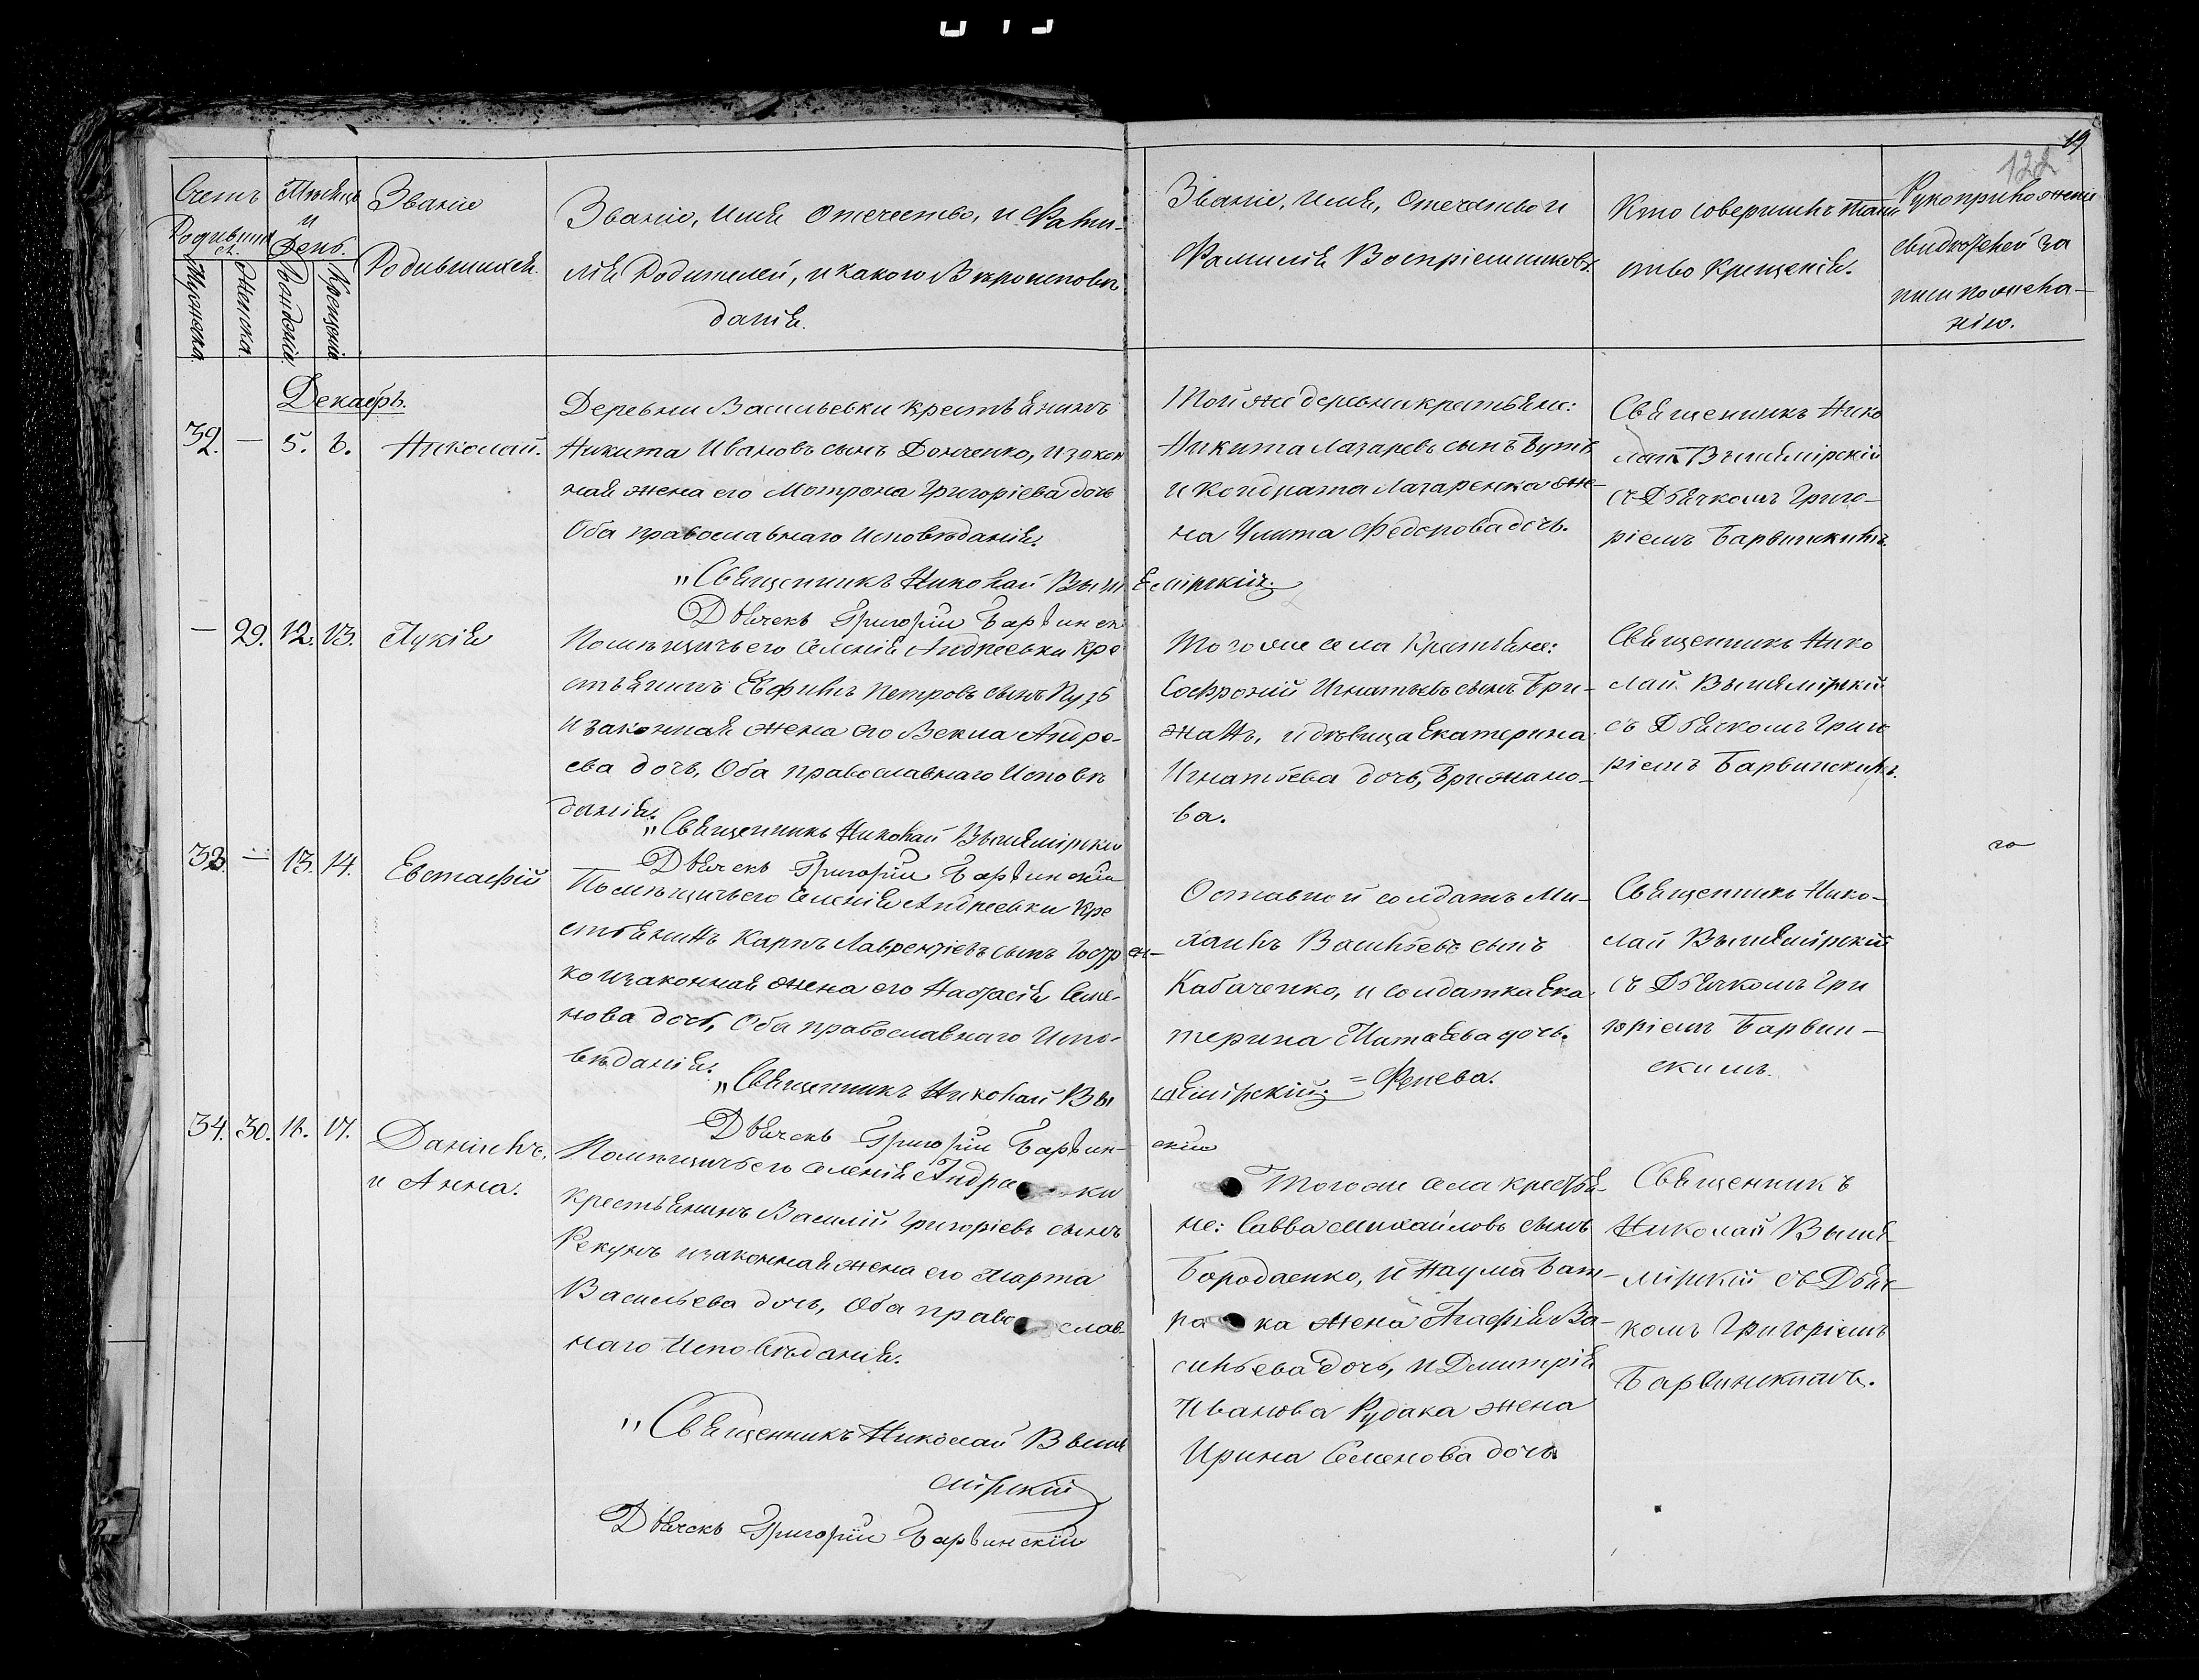 19
122
Счетъ
Родившихся.
Мужеска.
Женска.
Мѣсяцъ
и
День.
Рожденія.
Крещенія.
Званіе
Родившихся.
Званіе, Имя Отечество, и Фами-
лія Родителей, и какого Вѣроисповѣ
данія.
Званіе, Имя, Отечество и
Фамилія Воспріемниковъ.
Кто совершилъ таин
ство Крещенія.
Рукоприкложеніе
свидѣтелей за
писи по желa-
нію.
Декабрь.
32. — 5. 6. Николай.
Деревни Васильевки крестьянинъ
Никита Ивановъ сынъ Донченко, и закон
ная жена его Мотрона Григоріева дочь
Оба православнаго Исповѣданія.
"Священникъ Николай Вышемірскій.
Дьячекъ Григорій Барвинск
Той же деревни крестьяне:
Никита Лазаревъ сынъ
и Кондрата Лазаренка же-
на Улита Федорова дочь.
Священникъ Нико
лай Вышемірскій
съ Дьячкомъ Григо-
ріемъ Барвинскимъ.
— 29. 12. 13. Лукія
Помѣщичьего Селенія Андреевки Кре
стьянинъ Евфимъ Петровъ сынъ Пузь
и законная жена его Векла Андре-
ева дочь, Оба православнаго Исповѣ
данія.
"Священникъ Николай Вышемірскій
Дьячекъ Григорій Барвинскій
Того же села Крестьяне:
Софроній Игнатьевъ сынъ Бри-
жанъ, и дѣвица Екатерина
Игнатьева дочь, Брижано-
ва.
Священникъ Нико
лай Вышемірскій
съ Дьячкомъ Григо
ріемъ Барвинскимъ.
33. — 13. 14. Евстафій
Помѣщичьего Селенія Андреевки Кре
стьянинъ Карпъ Лаврентіевъ сынъ
ко и законная жена его Настасія Семе-
нова дочь, Оба православнаго Испо-
вѣданія.
"Священникъ Николай Вышемірскій.
Дьячекъ Григорій Барвинскій
Оставной солдатъ Ми-
хаилъ Васильевъ сынъ
Кабаченко, и солдатка Ека
терина дочь.
Священникъ Нико-
лай Вышемірскій
съ Дьячкомъ Гри
горіемъ Барвин-
скимъ.
34. 30. 14. 17. Даніилъ,
и Анна.
Помѣщичьего Селенія Андре ки
крестьянинъ Василій Григоріевъ сынъ
Рекунъ и законная жена его Марта
Васильева дочь, Оба православ-
наго Исповѣданія.
"Священникъ Николай Выше
мірскій
Дьячекъ Григорій Барвинскій
Того же села крестья-
не: Савва Михайловъ сынъ
Бородаенко, и Наума
ка жена Агафія Ва-
сильева дочь, и Дмитрія
Иванова Рудака жена
Ирина Семенова дочь.
Священникъ
Николай Выше
мірскій съ Дьяч-
комъ Григоріемъ
Барвинскимъ.